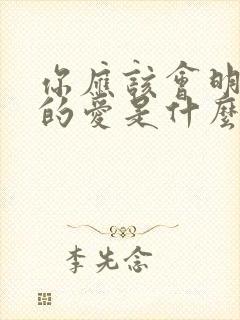 你應該會明
的愛是什麼
李先念